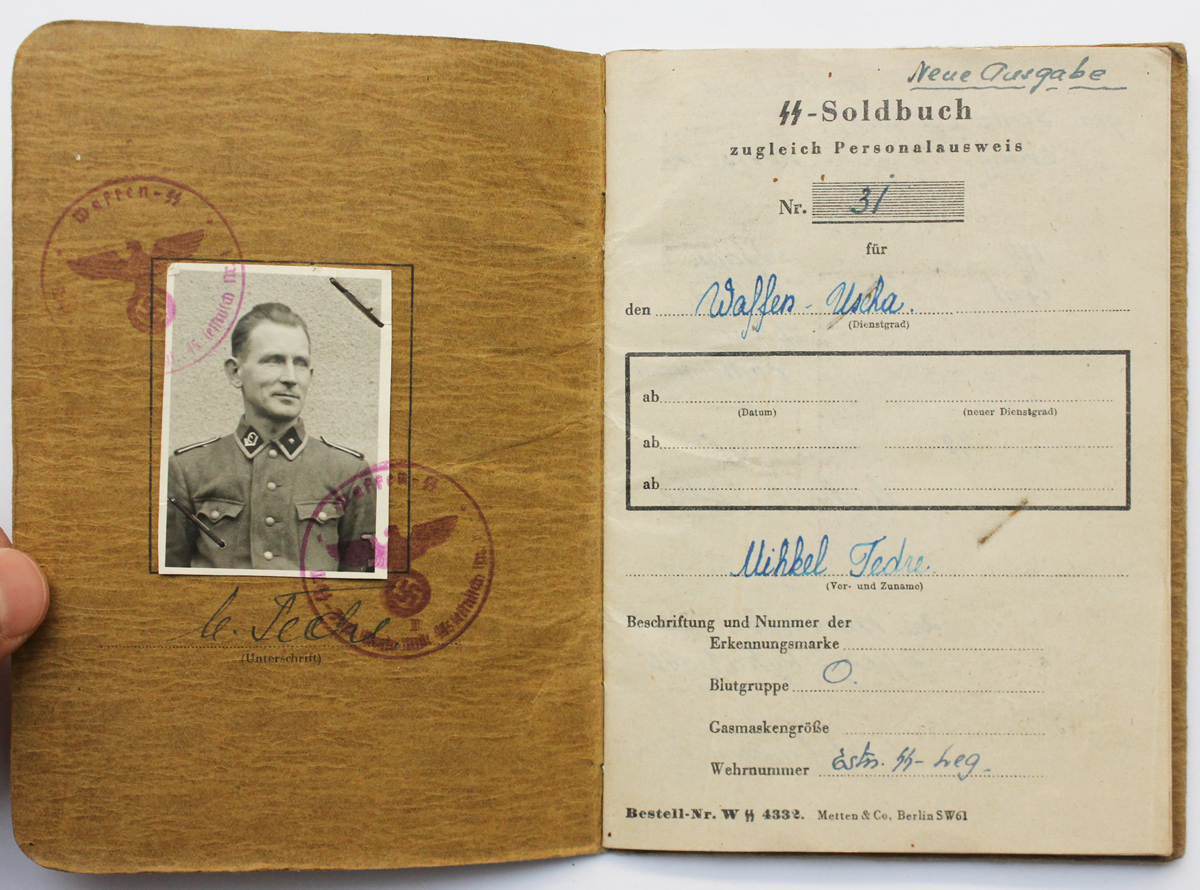 Waffen-SS
Waffen-SS
M. Tedre
(Unterschrift)
Neue Ausgabe
SS-Soldbuch
zugleich Personalausweis
Nr. 31
für
den Waffen-Uscha.
(Dienstgrad)
ab
(Datum) (neuer Dienstgrad)
ab
ab
Mihkel Tedre.
(Vor- und Zuname)
Beschriftung und Nummer der
Erkennungsmarke
Blutgruppe O.
Gasmaskengröße
Wehrnummer Estn. SS-Leg.
Bestell-Nr. W SS 4332. Metten & Co, Berlin SW61